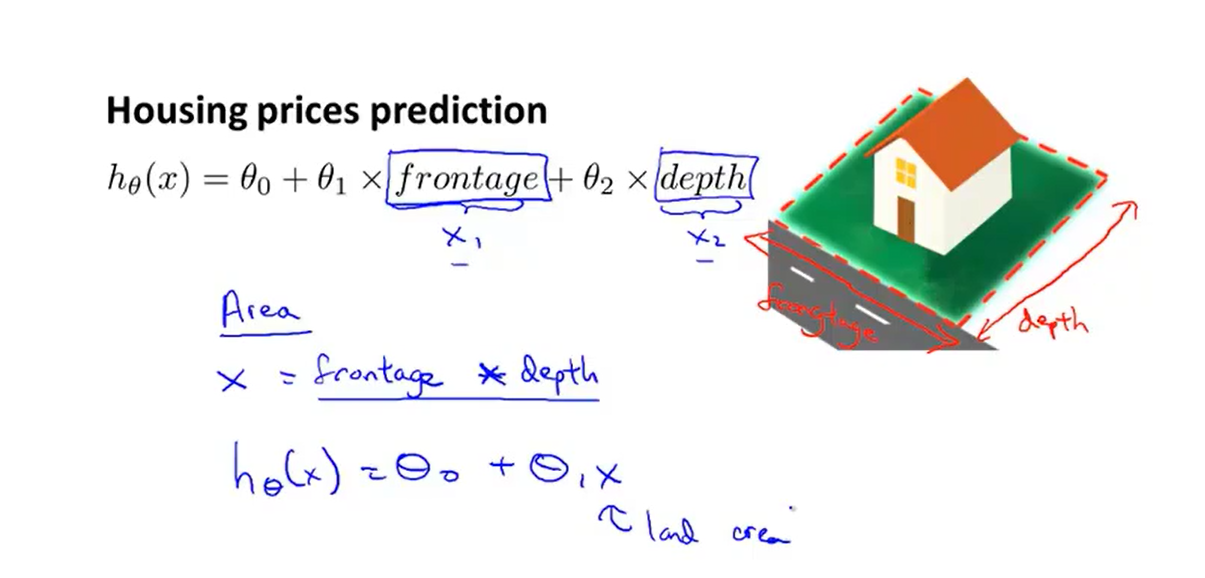 Housing prices prediction
hθ(x) = θ0 + θ1 × frontage + θ2 × depth
x1 x2
Area
x = frontage * depth
frongtage
depth
hθ(x) = θ0 + θ1x
land area